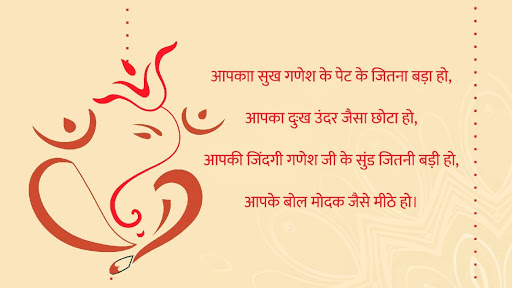 आपकाा सुख गणेश के पेट के जितना बड़ा हो,
आपका दुःख उंदर जैसा छोटा हो,
आपकी जिंदगी गणेश जी के सुंड जितनी बड़ी हो,
आपके बोल मोदक जैसे मीठे हो।